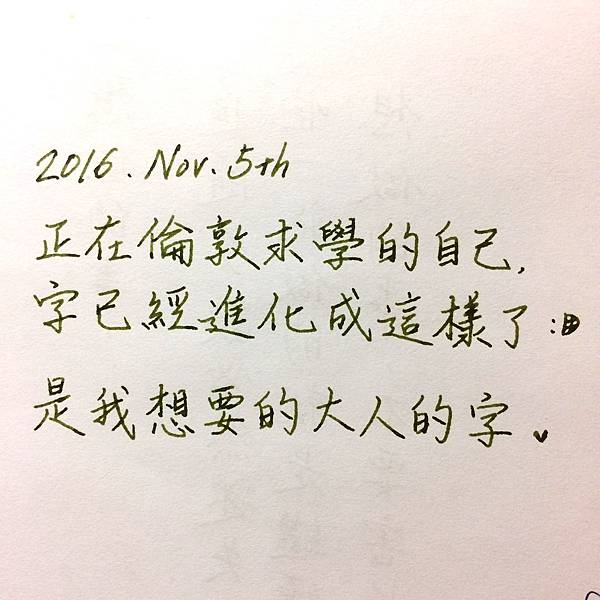 2016. Nov. 5th
正在倫敦求學的自己,
字已經進化成這樣了:D
是我想要的大人的字。